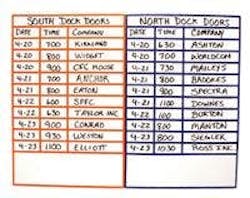 SOUTH DOCK DOORS
DATE TIME COMPANY
4-20 700 KIRKLAND
4-20 800 WIDGET
4-20 900 OFC HOUSE
4-21 700 ANCHOR
4-21 800 EATON
4-22 600
4-22 630 TAYLOR INC
4-23 900 CONRAD
4-23 930 WESTON
4-23 1100 ELLIOTT
NORTH DOCK DOORS
DATE TIME COMPANY
4-20 630 ASHTON
4-20 700 WORLDCOM
4-21 730 MAILEYS
4-21 800 BROOKES
4-21 900 SPECTRA
4-21 1100 DOWNES
4-22 100 BURTON
4-22 800 MANTON
4-23 800 SIEGLER
4-23 1030 ROSS INC.